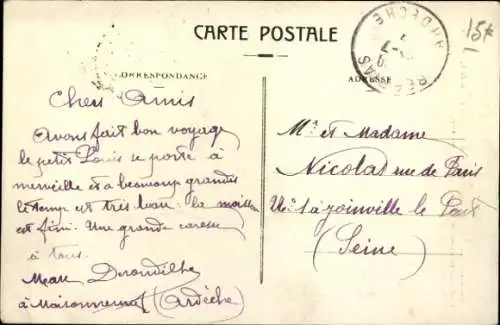 CARTE POSTALE
CORRESPONDANCE
ADRESSE
ARDÈCHE
15€
Chers Amis
Avons fait bon voyage
le petit Louis se porte à
merveille et a beaucoup grandit
le temp est très beau. la moisson
est fini. Une grande caresse
à tous.
à Maisonneuve (Ardèche)
Mr et Madame
Nicolas rue de Paris
No 1 à joinville le Pont
(Seine)